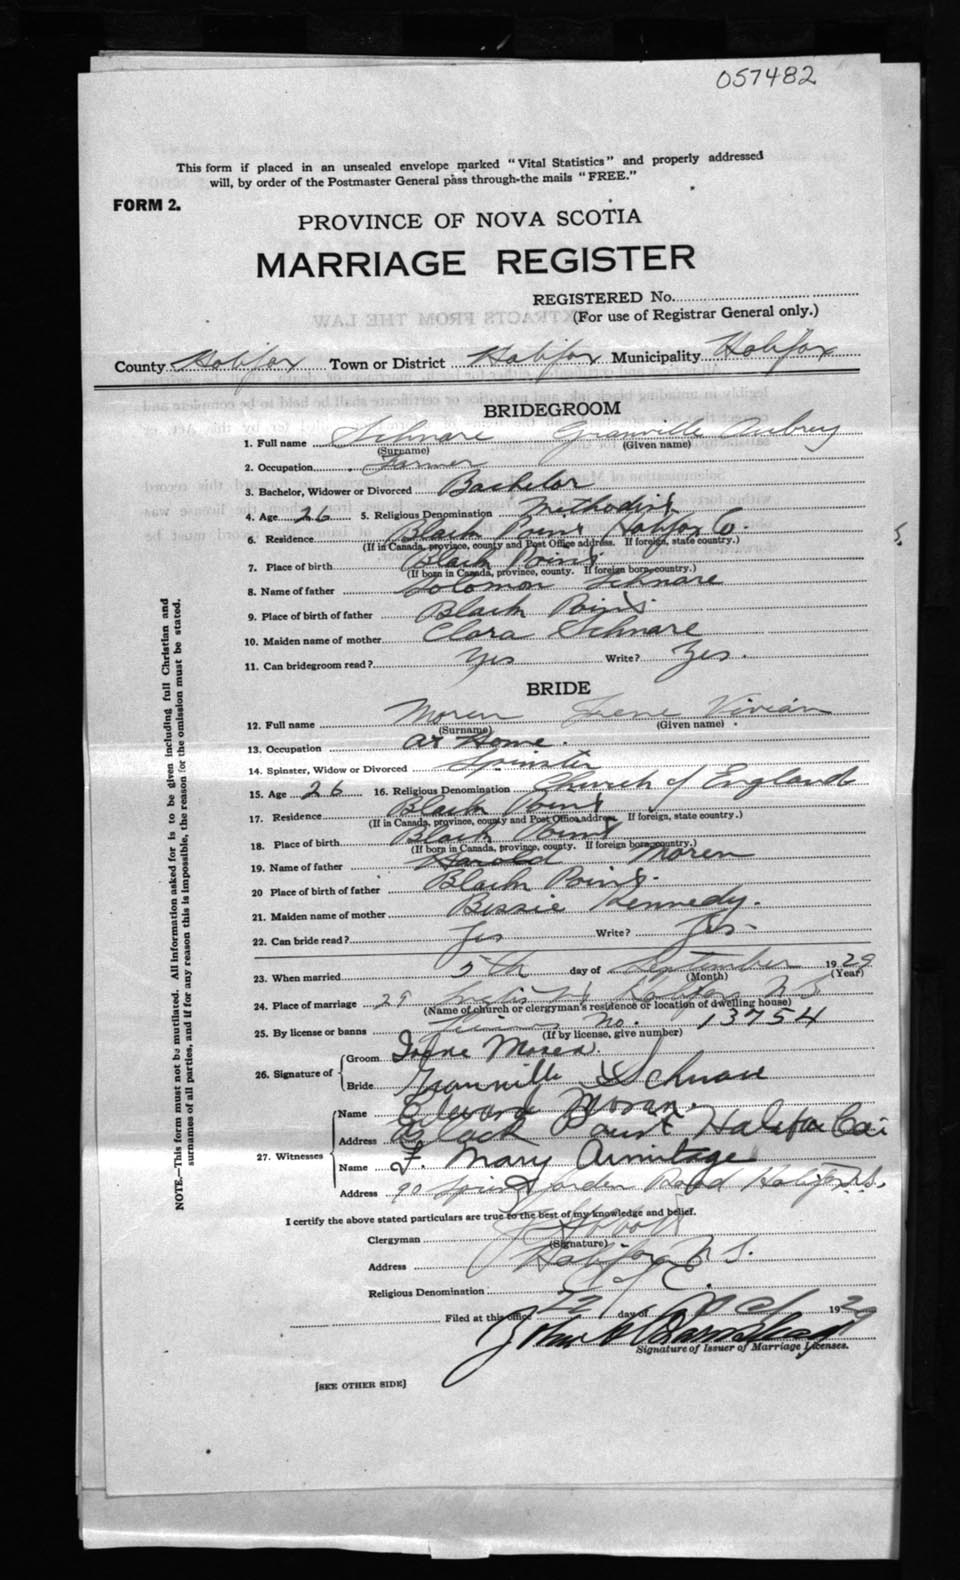 057482
This form if placed in an unsealed envelope marked "Vital Statistics" and properly addressed
will, by order of the Postmaster General pass through-the mails "FREE."
FORM 2.
PROVINCE OF NOVA SCOTIA
MARRIAGE REGISTER
REGISTERED No.
(For use of Registrar General only.)
County Halifax Town or District Halifax Municipality Halifax
BRIDEGROOM
1. Full name Schnare Granville Aubrey
(Surname) (Given name)
2. Occupation Farmer
3. Bachelor, Widower or Divorced Bachelor
4. Age 26 5. Religious Denomination Methodist
6. Residence Black Point Halifax Co.
(If in Canada, province, county and Post Office address. If foreign, state country.)
7. Place of birth Black Point
(If born in Canada, province, county. If foreign born, country.)
8. Name of father Solomon Schnare
9. Place of birth of father Black Point
10. Maiden name of mother Clara Schnare
11. Can bridegroom read? Yes Write? Yes.
BRIDE
12. Full name Moren Irene Vivian
(Surname) (Given name)
13. Occupation At Home.
14. Spinster, Widow or Divorced Spinster
15. Age 26 16. Religious Denomination Church of England
17. Residence Black Point
(If in Canada, province, county and Post Office address. If foreign, state country.)
18. Place of birth Black Point
(If born in Canada, province, county. If foreign born, country.)
19. Name of father Harold Moren
20 Place of birth of father Black Point.
21. Maiden name of mother Bessie Kennedy.
22. Can bride read? Yes Write? Yes-
23. When married 5th day of September 1929
(Month) (Year)
24. Place of marriage 29 Halifax N S
(Name of church or clergyman's residence or location of dwelling house)
25. By license or banns License No. 13754
(If by license, give number)
26. Signature of Groom Irene Moren.
Bride Granville Schnare
27. Witnesses Name Edward Moran.
Address Black Point Halifax Co.
Name F. Mary Armitage
Address 90 Spring Garden Road Halifax N.S.
I certify the above stated particulars are true to the best of my knowledge and belief.
Clergyman
(Signature)
Address Halifax N S.
Religious Denomination C of E.
Filed at this office 22 day of Oct 1929
Signature of Issuer of Marriage Licenses.
[SEE OTHER SIDE]
NOTE.—This form must not be mutilated. All information asked for is to be given including full Christian and
surnames of all parties, and if for any reason this is impossible, the reason for the omission must be stated.